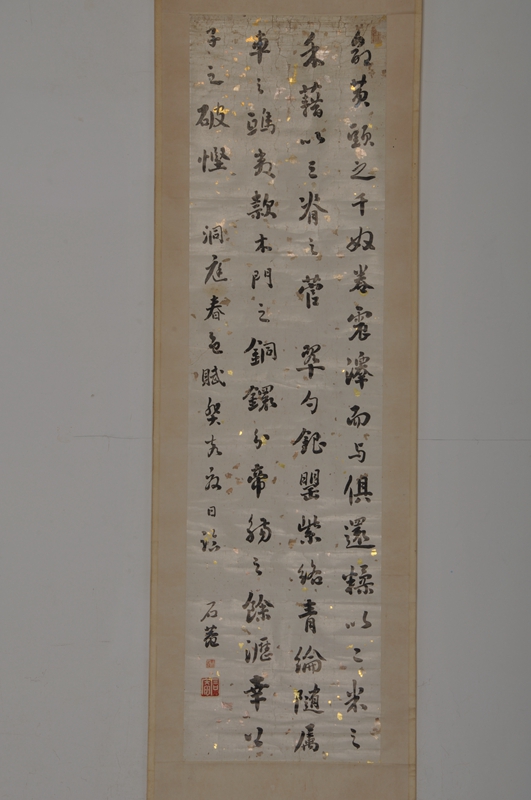 黃頭之千奴卷震澤而与俱還糅以二米之
禾藉以三脊之菅翠勺銀罌紫絡青綸隨属
車之鴟夷款木門之銅鐶分帝觴之餘瀝幸公
子之破慳 洞庭春色賦癸亥夏日臨 石菴